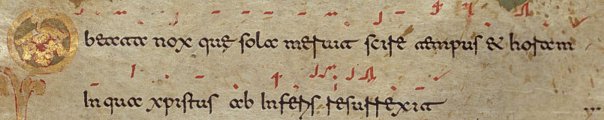 O beata nox que sola meruit scire tempus & horam
In qua xpistus ab Inferis resurrexit